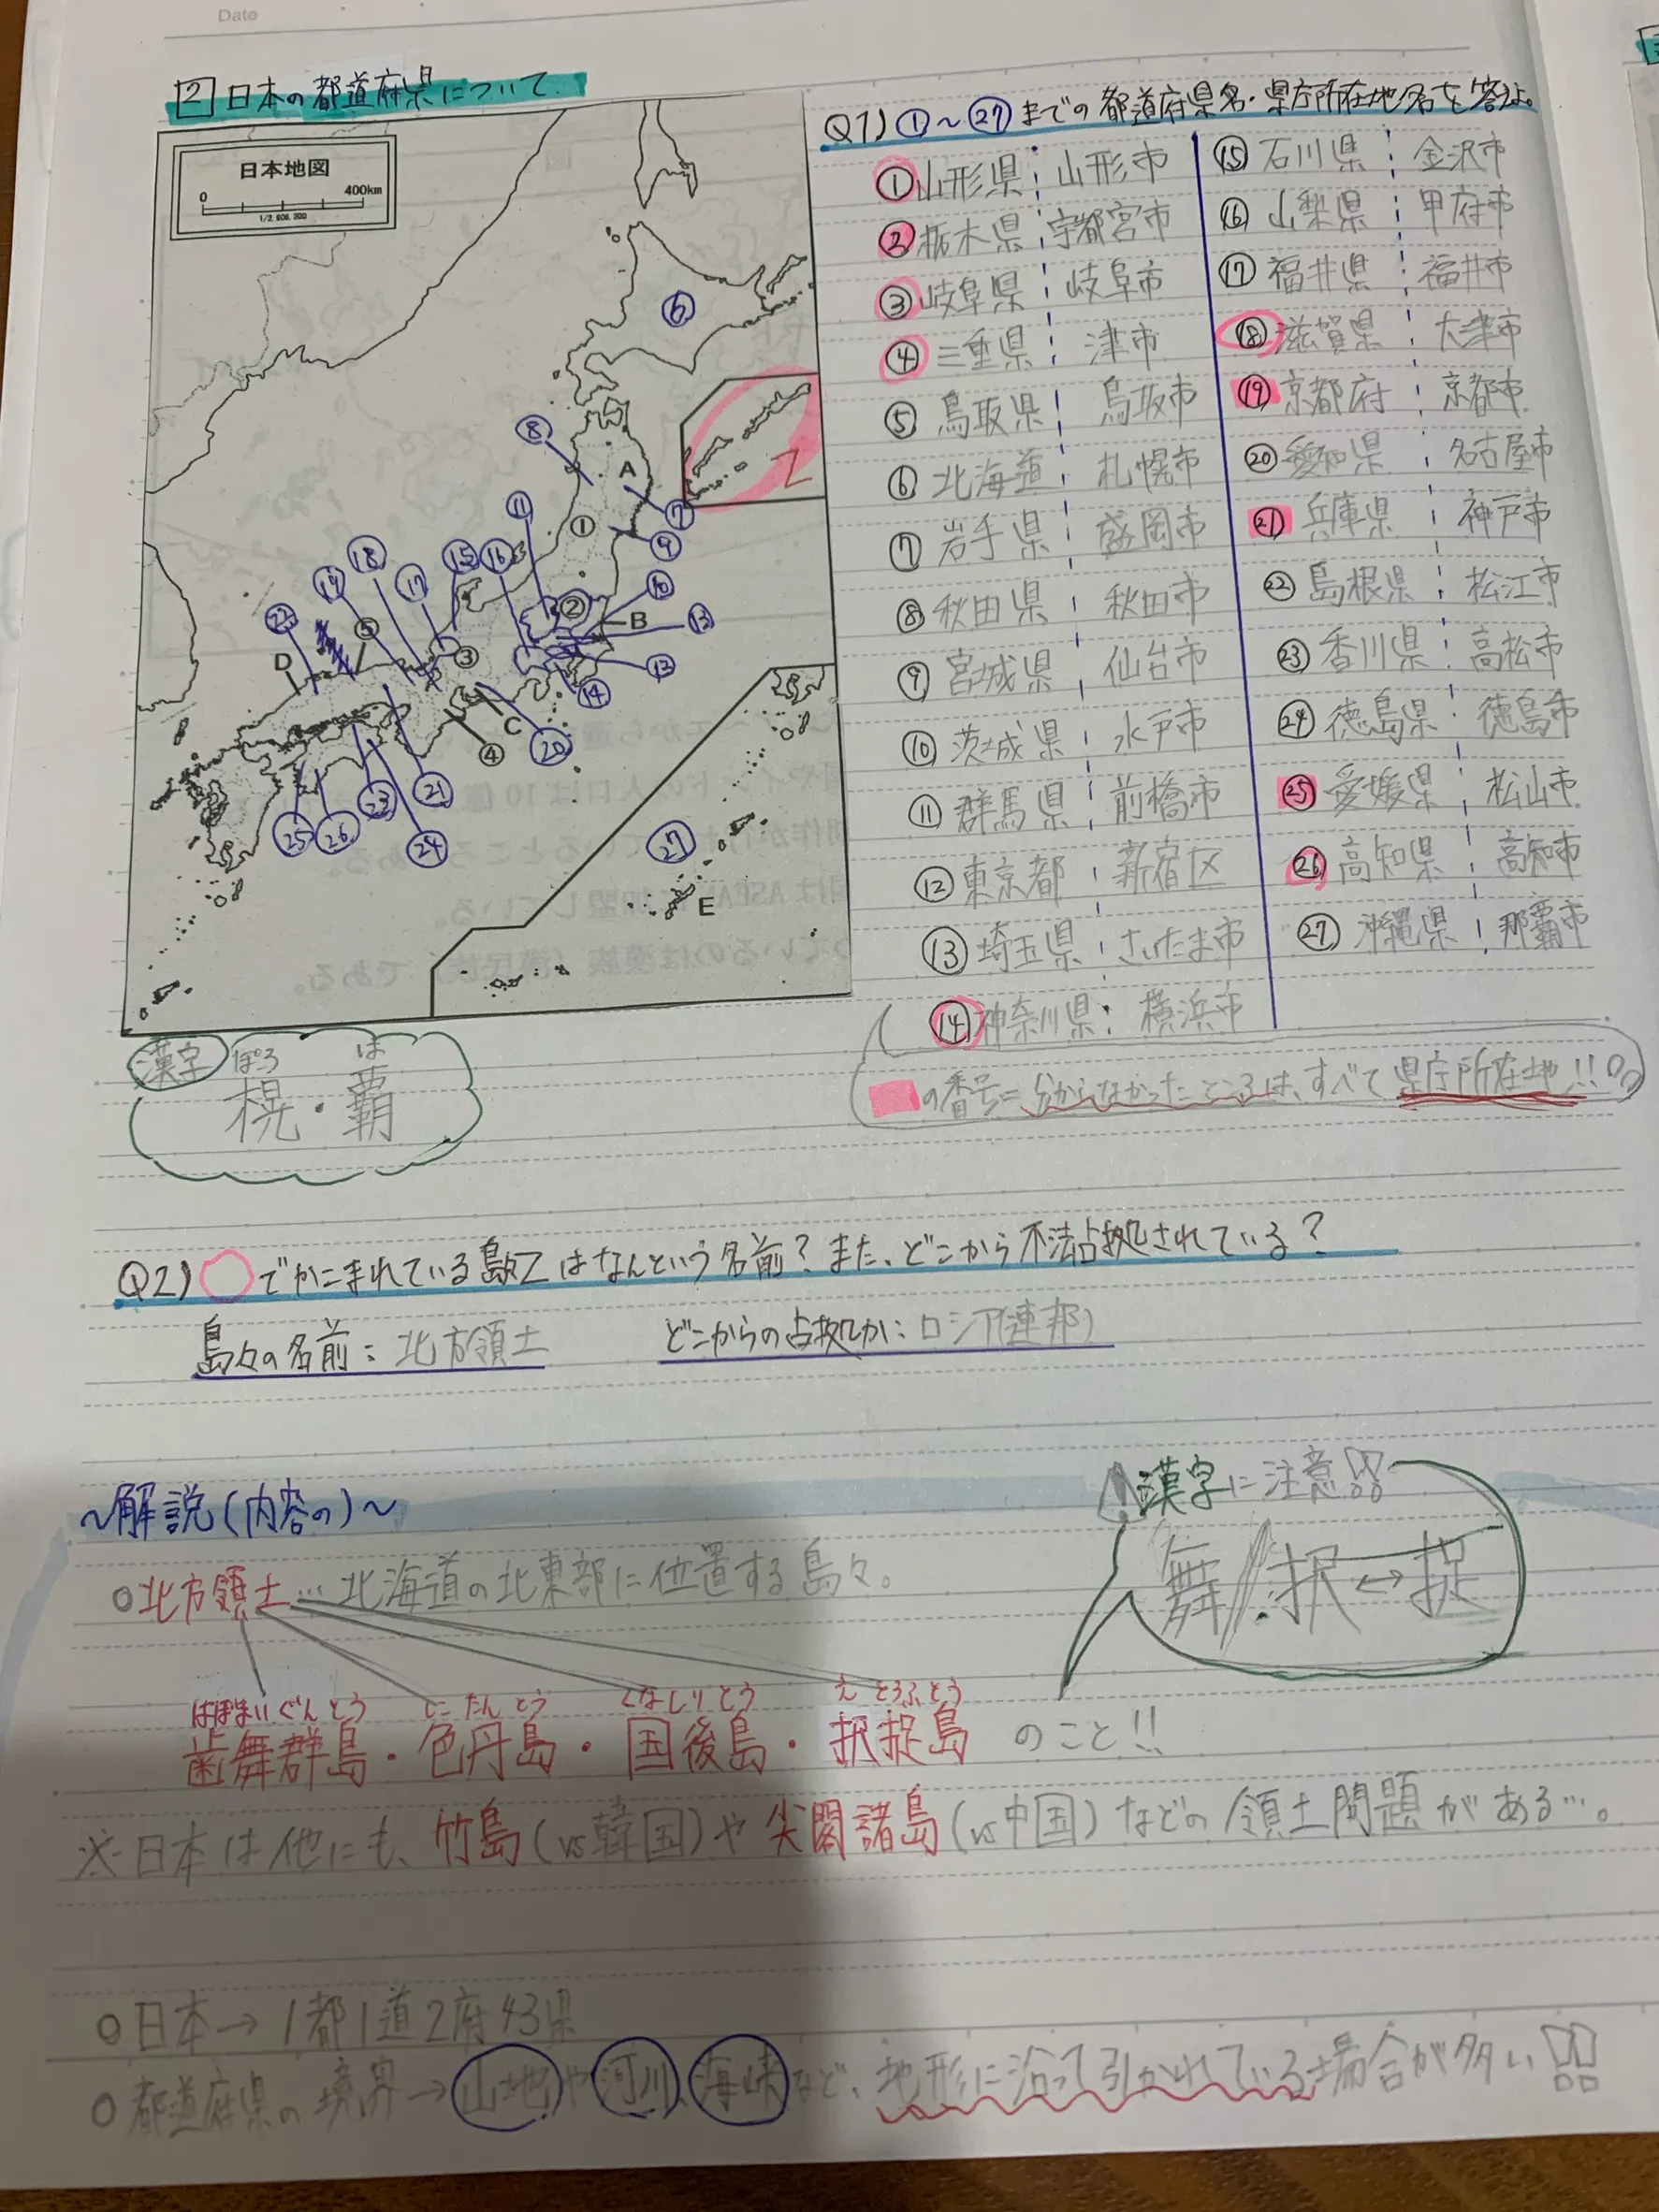 Date
2 日本の都道府県について
日本地図
0 400km
1/2,808,200
⑥
Z
⑧
A
⑦
⑪
①
⑨
⑱
⑮
⑯
⑲
⑰
⑩
②
B
⑬
㉒
⑤
③
D
⑫
⑭
C
④
⑳
㉑
㉓
㉕
㉖
㉔
㉗
E
Q1) ①～㉗までの都道府県名・県庁所在地名を答えよ。
①山形県 山形市
②栃木県 宇都宮市
③岐阜県 岐阜市
④三重県 津市
⑤鳥取県 鳥取市
⑥北海道 札幌市
⑦岩手県 盛岡市
⑧秋田県 秋田市
⑨宮城県 仙台市
⑩茨城県 水戸市
⑪群馬県 前橋市
⑫東京都 新宿区
⑬埼玉県 さいたま市
⑭神奈川県 横浜市
⑮石川県 金沢市
⑯山梨県 甲府市
⑰福井県 福井市
⑱滋賀県 大津市
⑲京都府 京都市
⑳愛知県 名古屋市
㉑兵庫県 神戸市
㉒島根県 松江市
㉓香川県 高松市
㉔徳島県 徳島市
㉕愛媛県 松山市
㉖高知県 高知市
㉗沖縄県 那覇市
の番号に分からなかったところは、すべて県庁所在地!!
漢字 ぽろ は
幌・覇
Q2) ○でかこまれている島々Zはなんという名前？また、どこから不法占拠されている？
島々の名前：北方領土 どこからの占拠か：ロシア(連邦)
～解説(内容の)～
漢字に注意!!
舞 択↔捉
○北方領土…北海道の北東部に位置する島々。
はぼまいぐんとう しこたんとう くなしりとう えとろふとう
歯舞群島・色丹島・国後島・択捉島 のこと!!
※日本は他にも、竹島(vs韓国)や尖閣諸島(vs中国)などの領土問題がある…。
○日本→1都1道2府43県
○都道府県の境界→山地や河川、海峡など、地形に沿って引かれている場合が多い!!